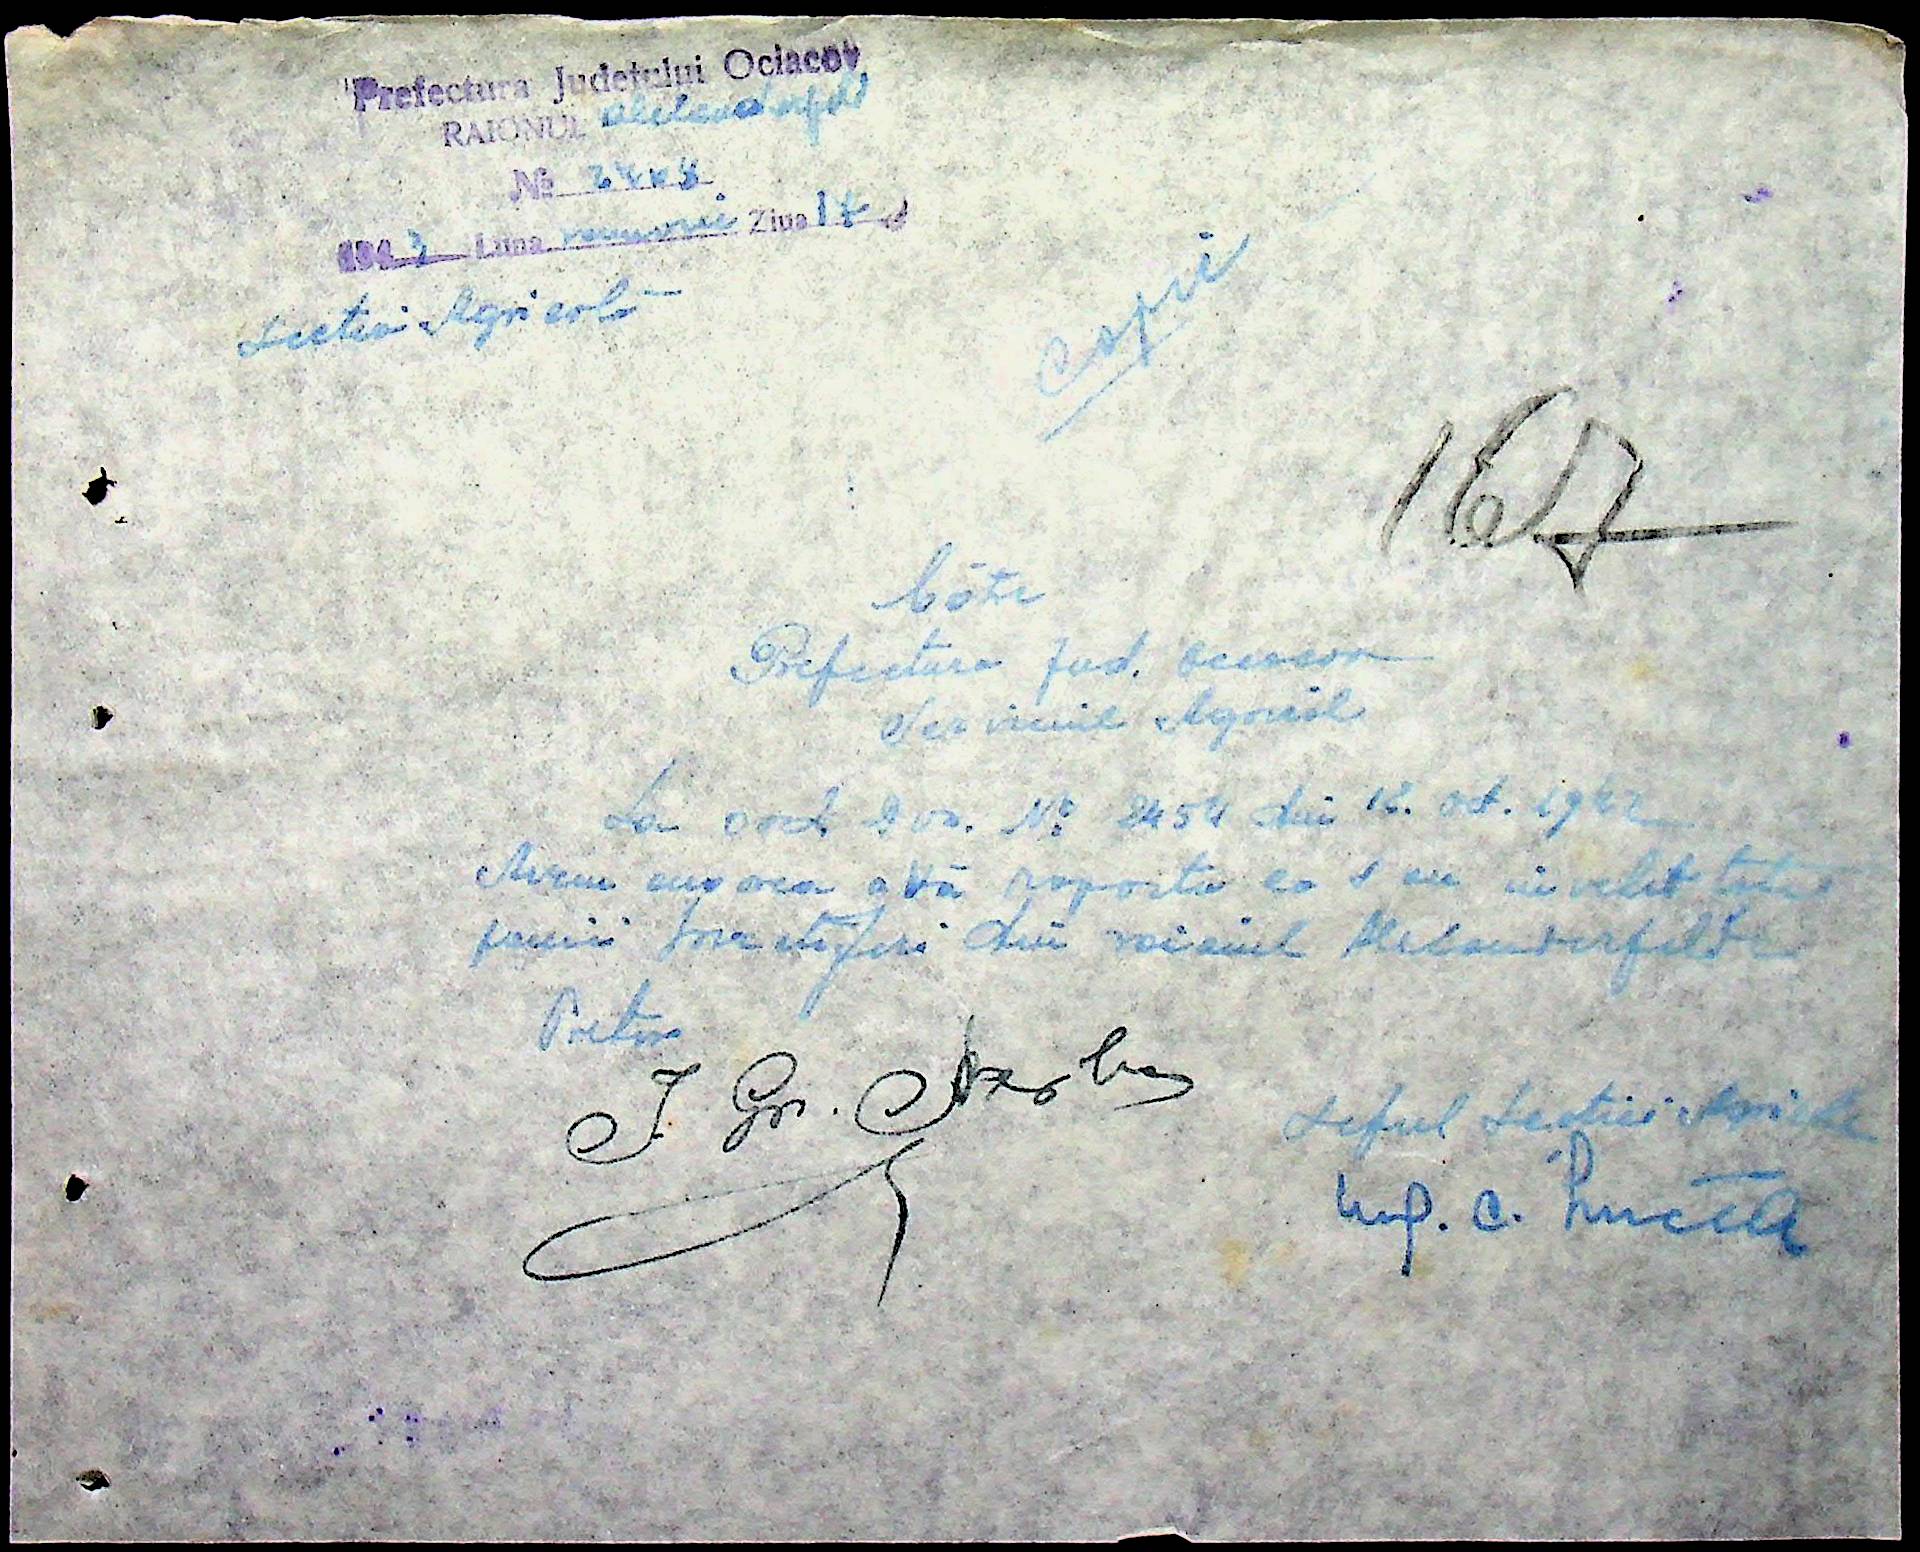 Prefectura Județului Ociacov
RAIONUL Alexanderfeld
№
1943 Luna Ianuarie Ziua 14
Secția Agricolă
copie
167
Către
Prefectura Jud. Oceacov
Serviciul Agricol
La ord. Dvs. № 2454 din 12. oct. 1942
Avem onoarea a Vă raporta ca s au
din raionul Alexanderfeld
Pretor
I. Gr.
Șeful Secției Agricole
Ing. C.